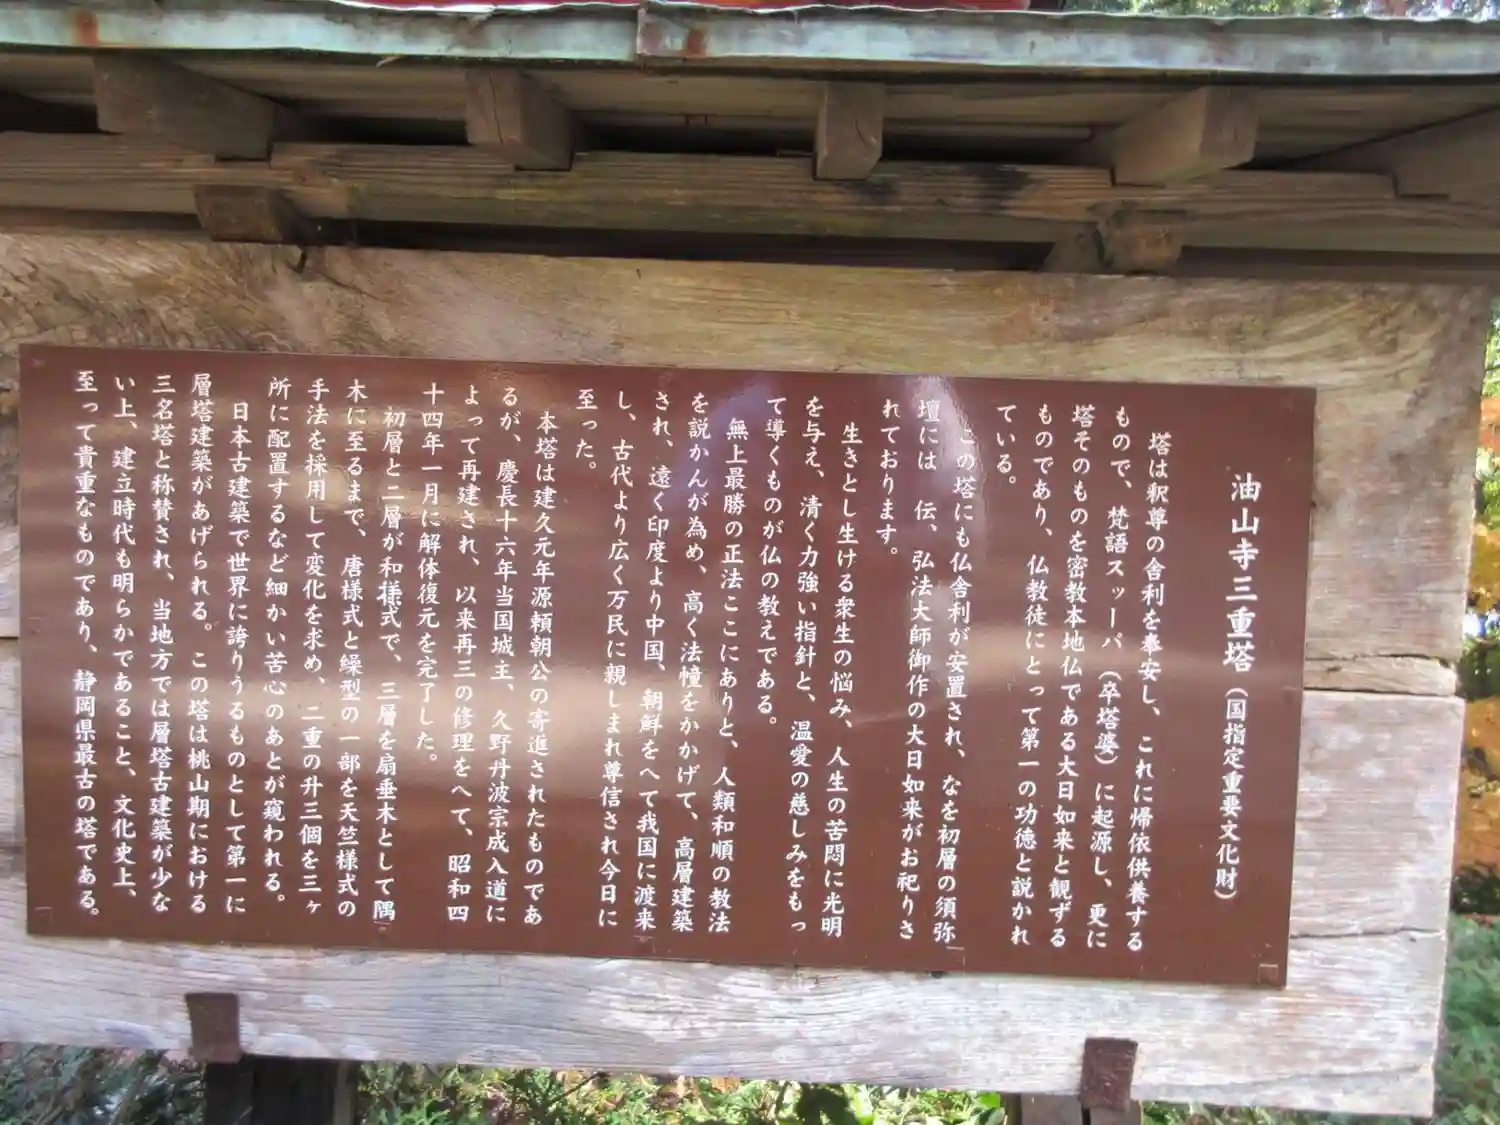 油山寺三重塔（国指定重要文化財）
塔は釈尊の舎利を奉安し、これに帰依供養する
もので、梵語スッーパ（卒塔婆）に起源し、更に
塔そのものを密教本地仏である大日如来と観ずる
ものであり、仏教徒にとって第一の功徳と説かれ
ている。
この塔にも仏舎利が安置され、なを初層の須弥
壇には 伝、弘法大師御作の大日如来がお祀りさ
れております。
生きとし生ける衆生の悩み、人生の苦悶に光明
を与え、清く力強い指針と、温愛の慈しみをもっ
て導くものが仏の教えである。
無上最勝の正法ここにありと、人類和順の教法
を説かんが為め、高く法幢をかかげて、高層建築
され、遠く印度より中国、朝鮮をへて我国に渡来
し、古代より広く万民に親しまれ尊信され今日に
至った。
本塔は建久元年源頼朝公の寄進されたものであ
るが、慶長十六年当国城主、久野丹波宗成入道に
よって再建され、以来再三の修理をへて、昭和四
十四年一月に解体復元を完了した。
初層と二層が和様式で、三層を扇垂木として隅
木に至るまで、唐様式と繰型の一部を天竺様式の
手法を採用して変化を求め、二重の升三個を三ヶ
所に配置するなど細かい苦心のあとが窺われる。
日本古建築で世界に誇りうるものとして第一に
層塔建築があげられる。この塔は桃山期における
三名塔と称賛され、当地方では層塔古建築が少な
い上、建立時代も明らかであること、文化史上、
至って貴重なものであり、静岡県最古の塔である。